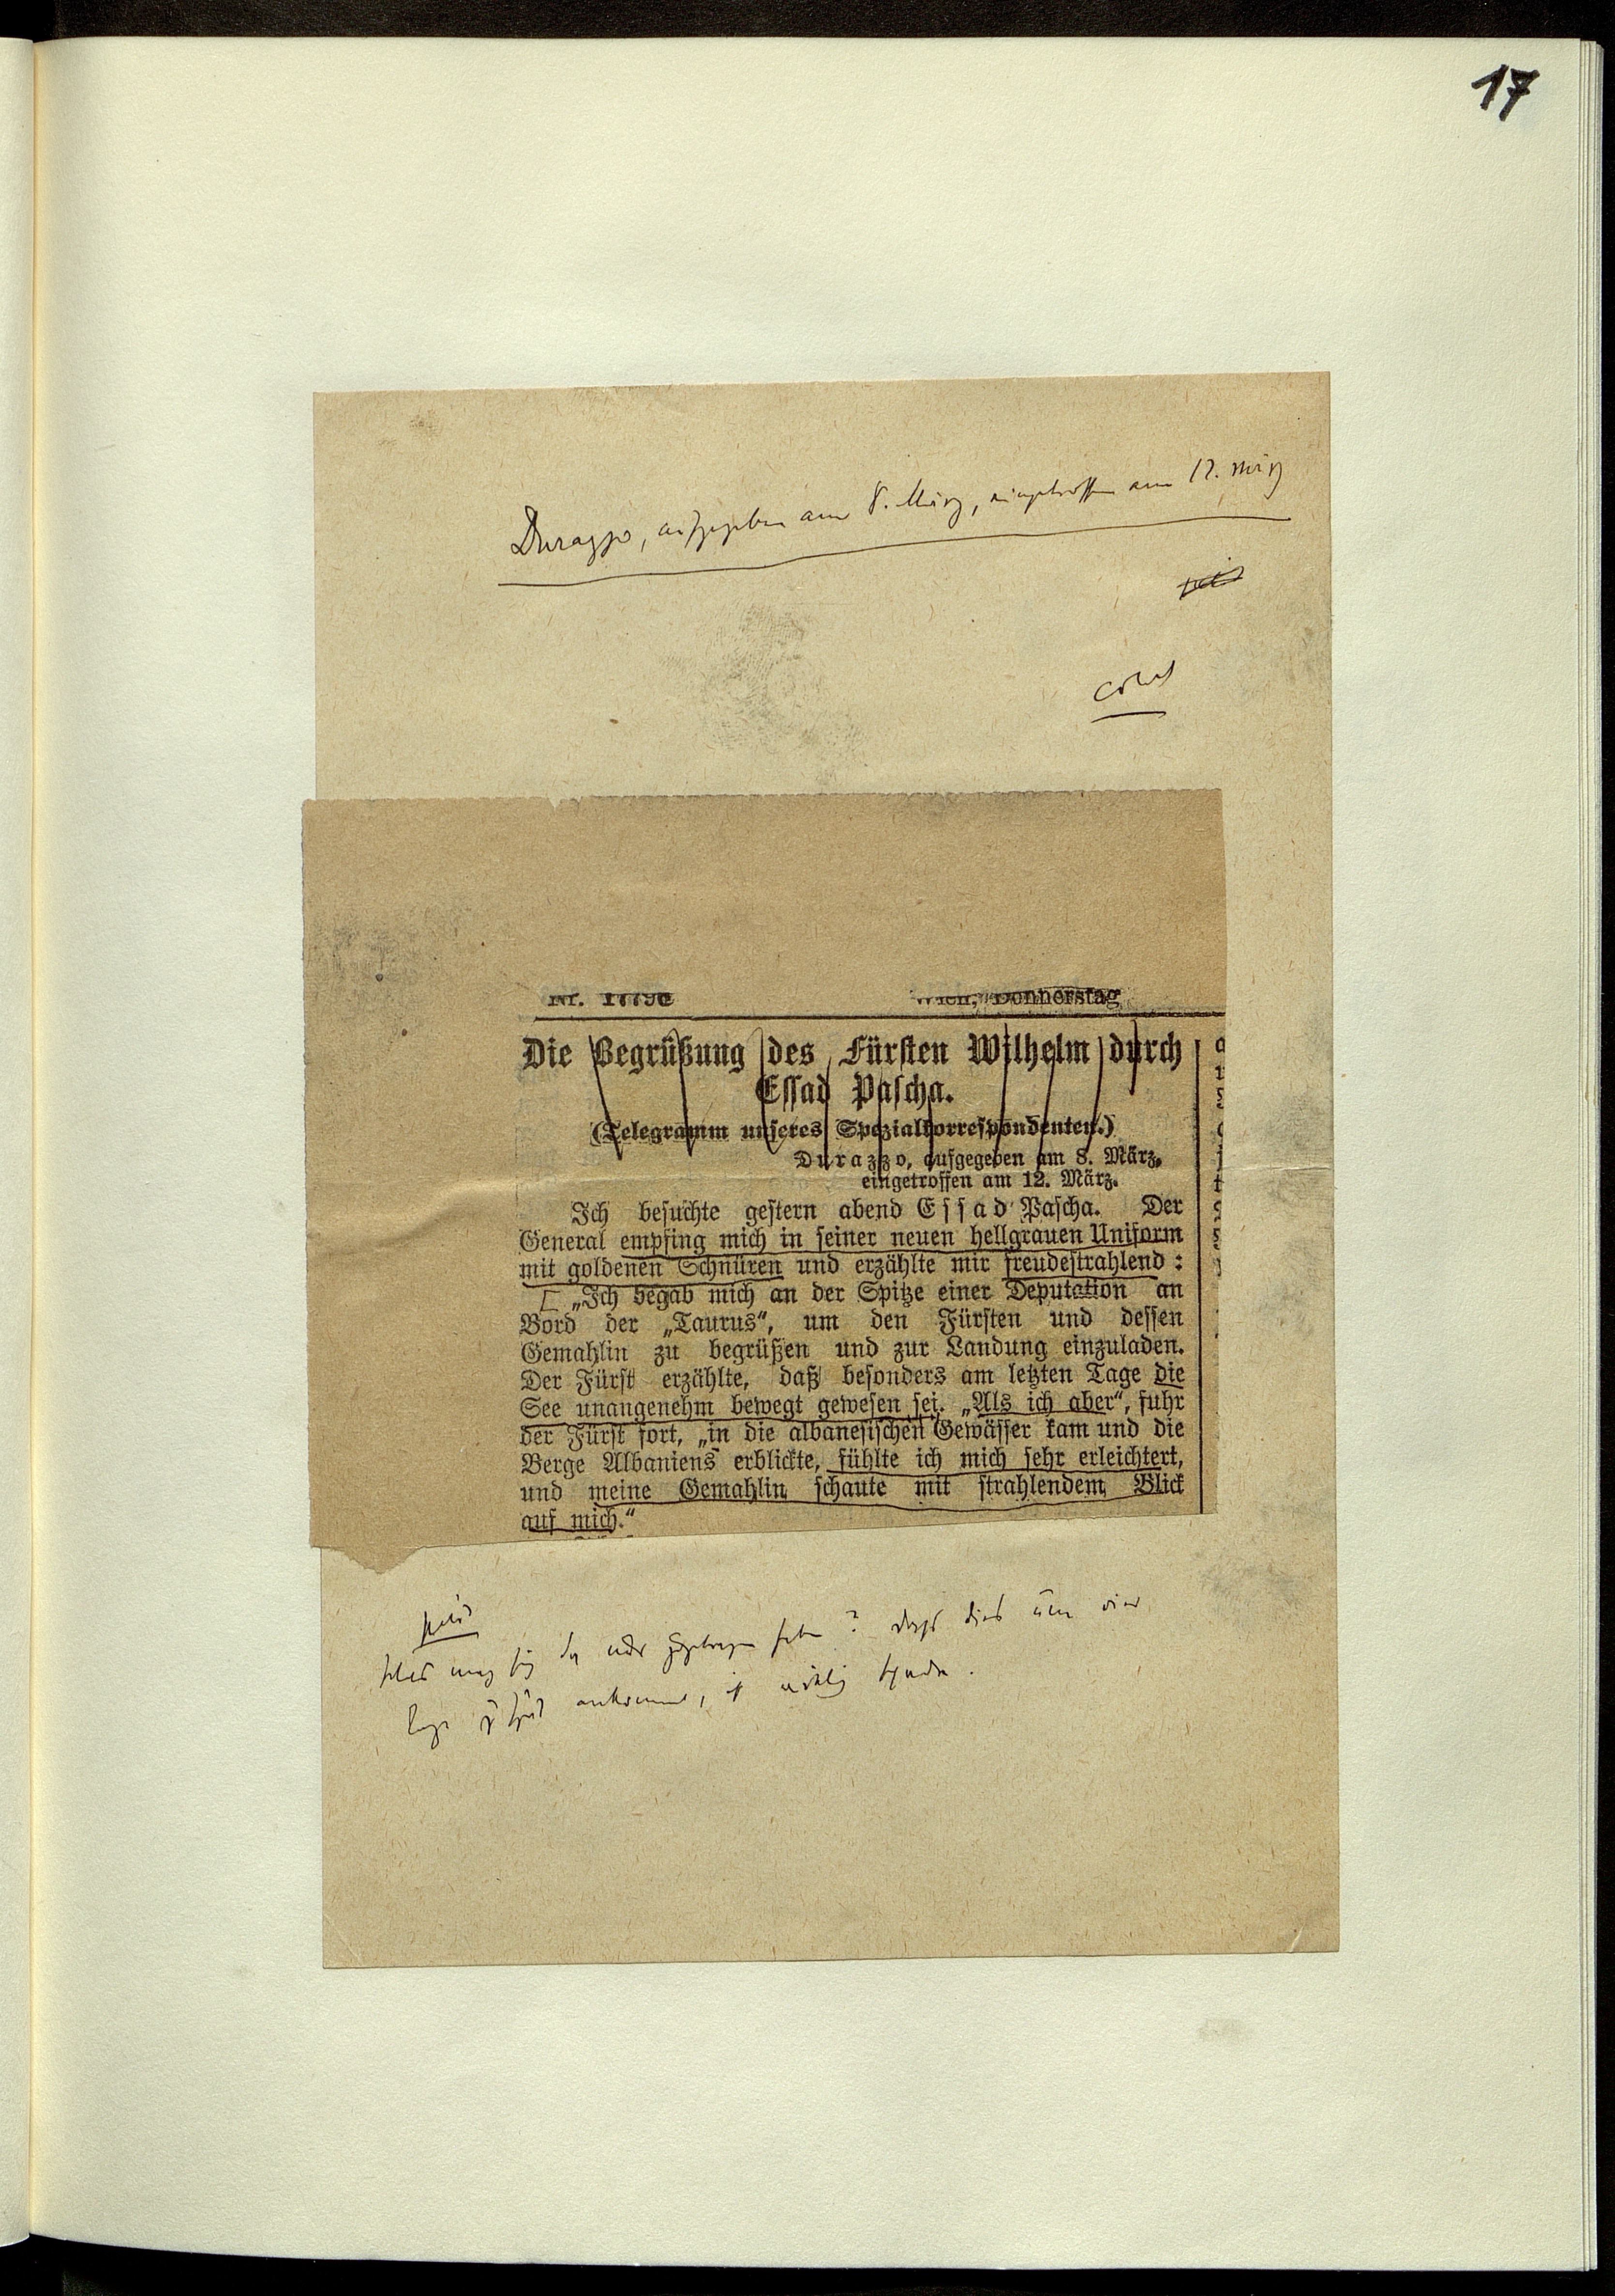 17
Durazzo, aufgegeben am 8. März, eingetroffen am 12. März
Nr. 1779
Wien, Donnerstag
Die Begrüßung des Fürsten Wilhelm durch
Essad Pascha.
(Telegramm unseres Spezialkorrespondenten.)
Durazzo, aufgegeben am 8. März,
eingetroffen am 12. März.
Ich besuchte gestern abend Essad Pascha. Der
General empfing mich in seiner neuen hellgrauen Uniform
mit goldenen Schnüren und erzählte mir freudestrahlend:
[ „Ich begab mich an der Spitze einer Deputation an
Bord der „Taurus“, um den Fürsten und dessen
Gemahlin zu begrüßen und zur Landung einzuladen.
Der Fürst erzählte, daß besonders am letzten Tage die
See unangenehm bewegt gewesen sei. „Als ich aber“, fuhr
der Fürst fort, „in die albanesischen Gewässer kam und die
Berge Albaniens erblickte, fühlte ich mich sehr erleichtert,
und meine Gemahlin schaute mit strahlendem Blick
auf mich.“
mag sich da nur zugetragen haben? dass dies um vier
Tage zu spät ankommt, ist